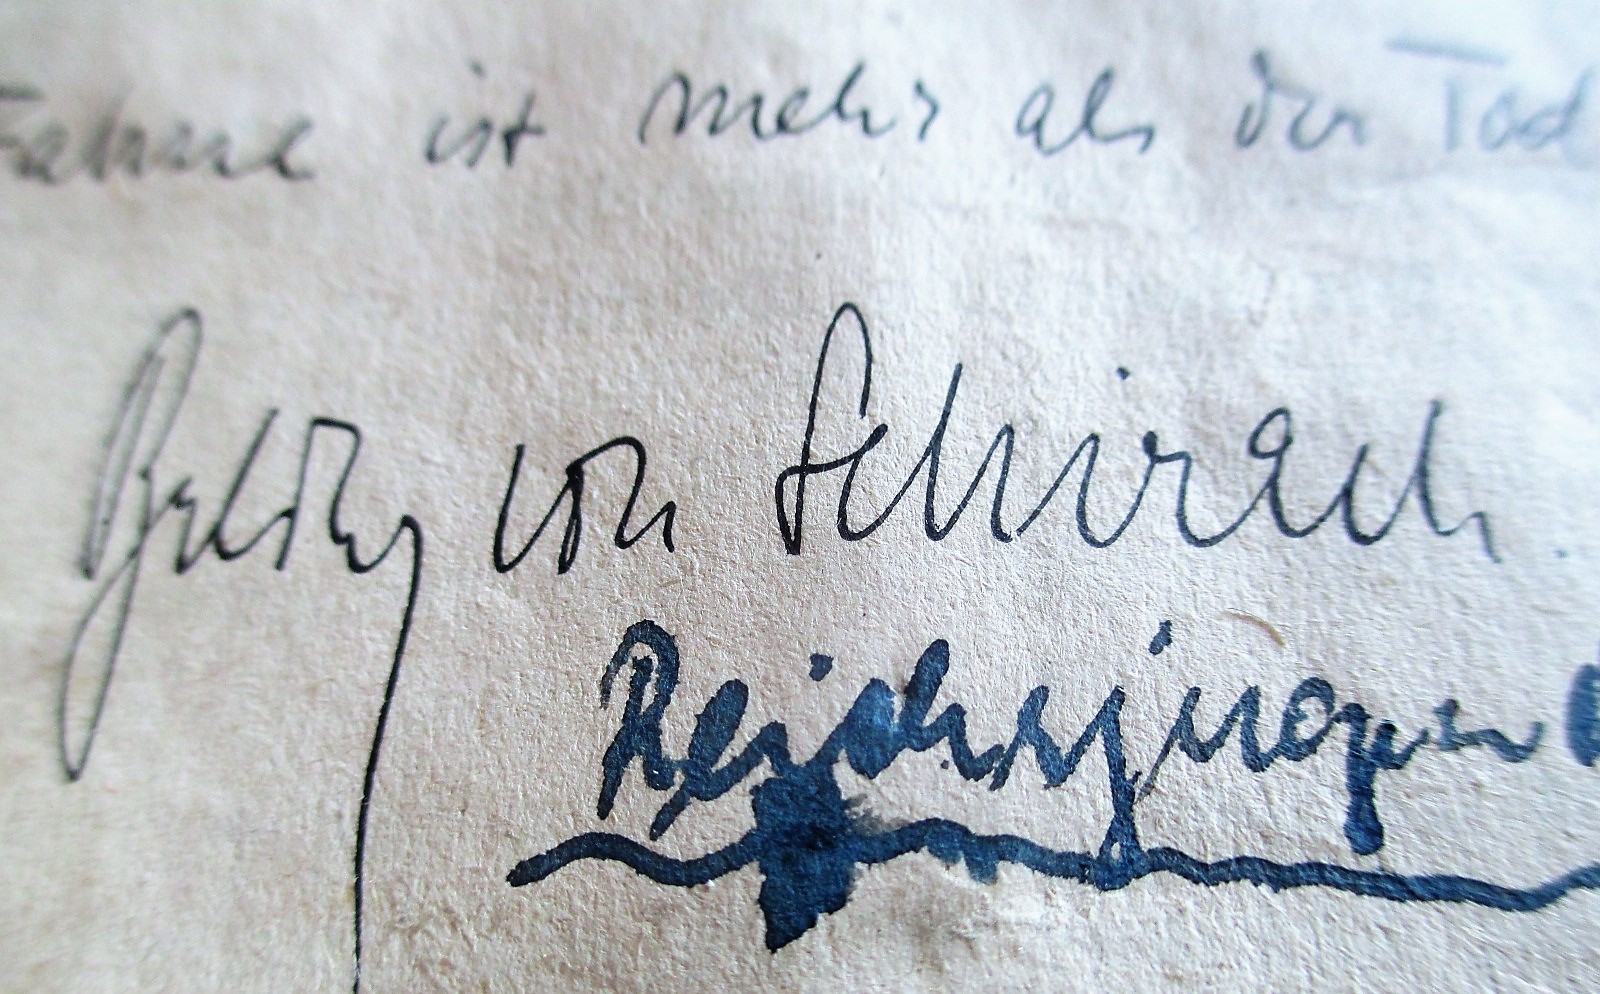 Fahne ist mehr als der Tod
Baldur von Schirach.
Reichsjugend